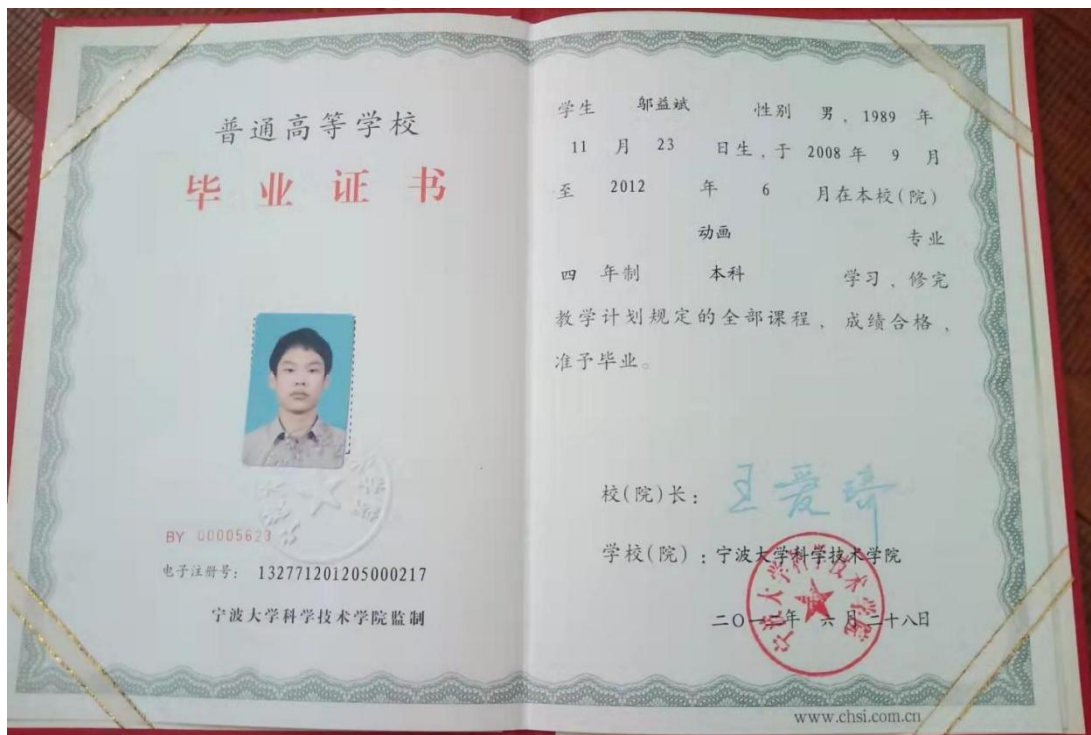 普通高等学校
毕业证书
BY 00005623
电子注册号: 132771201205000217
宁波大学科学技术学院监制
学生 邬益斌 性别 男, 1989 年
11 月 23 日生, 于 2008 年 9 月
至 2012 年 6 月在本校(院)
动画 专业
四 年制 本科 学习, 修完
教学计划规定的全部课程, 成绩合格,
准予毕业。
校(院)长: 王爱琦
学校(院): 宁波大学科学技术学院
宁波大学科学技术学院
二〇一二年 六月二十八日
www.chsi.com.cn